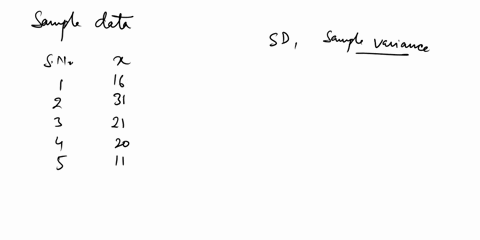 Sample data
SD, Sample variance
S.No. x
1 16
2 31
3 21
4 20
5 11